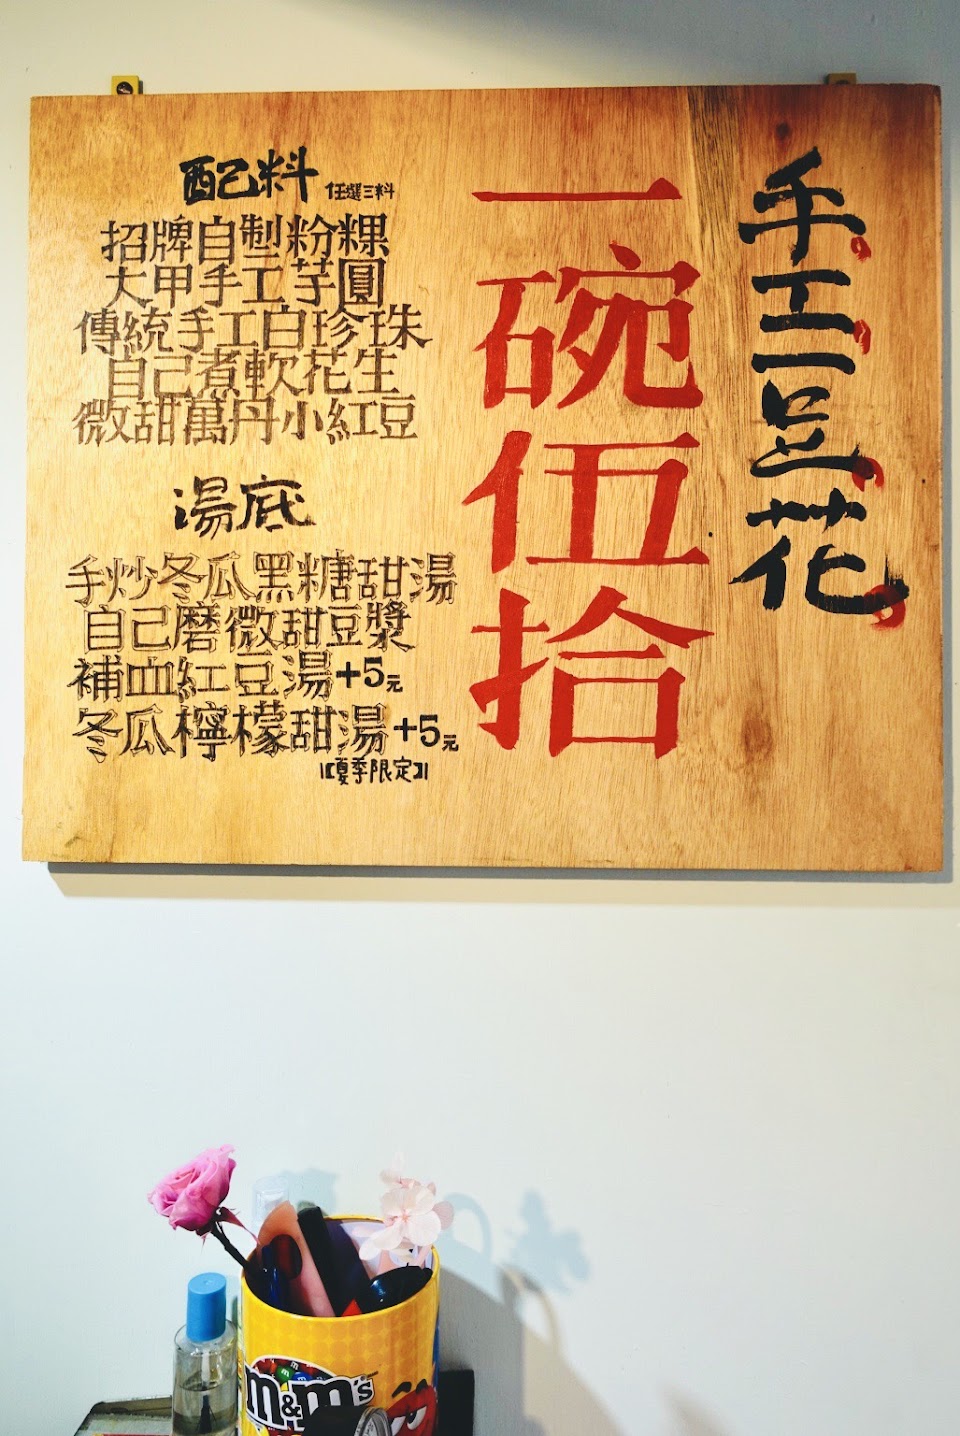 手工豆花
一碗伍拾
配料 任選三料
招牌自製粉粿
大甲手工芋圓
傳統手工白珍珠
自己煮軟花生
微甜萬丹小紅豆
湯底
手炒冬瓜黑糖甜湯
自己磨微甜豆漿
補血紅豆湯+5元
冬瓜檸檬甜湯+5元
【夏季限定】
m&m's